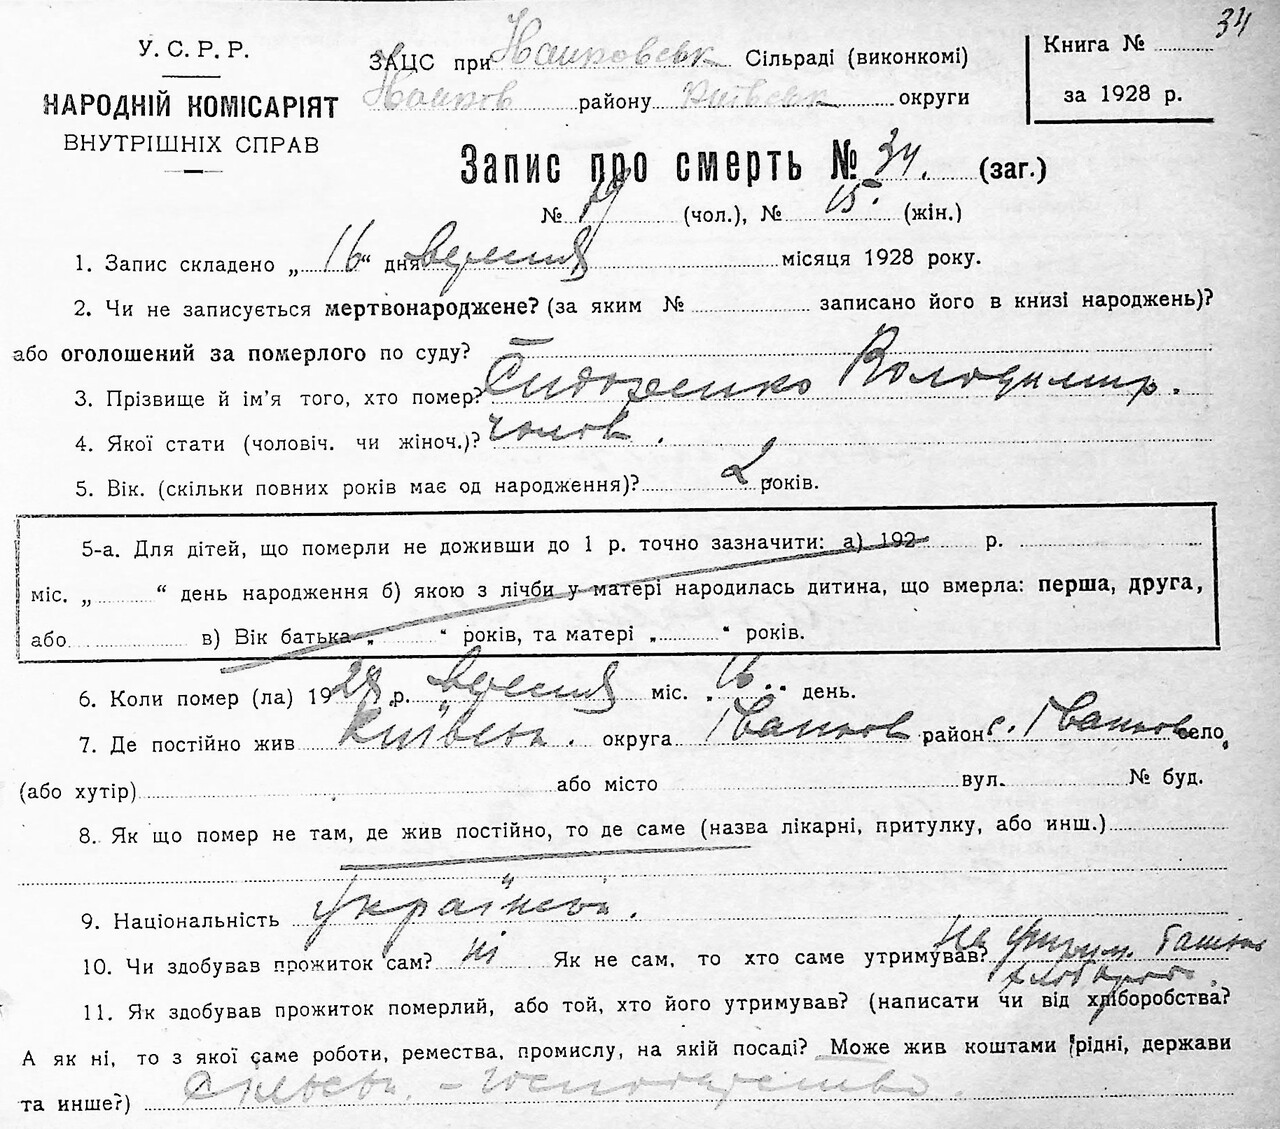 34
У. С. Р. Р.
НАРОДНІЙ КОМІСАРІЯТ
ВНУТРІШНІХ СПРАВ
ЗАЦС при Сільраді (виконкомі)
району Київськ округи
Книга №
за 1928 р.
Запис про смерть № 34. (заг.)
№ 19 (чол.), № 15. (жін.)
1. Запис складено „ 16 “ дня вересня місяця 1928 року.
2. Чи не записується мертвонароджене? (за яким № записано його в книзі народжень)?
або оголошений за померлого по суду? —
3. Прізвище й ім'я того, хто помер? Сидоренко Володимир.
4. Якої стати (чоловіч. чи жіноч.)? чолов.
5. Вік. (скільки повних років має од народження)? 2 років.
5-а. Для дітей, що померли не доживши до 1 р. точно зазначити: а) 192 р.
міс. „ “ день народження б) якою з лічби у матері народилась дитина, що вмерла: перша, друга,
або в) Вік батька „ “ років, та матері „ “ років.
6. Коли помер (ла) 1928 р. вересня міс. „ 16 “ день.
7. Де постійно жив Київськ. округа Іванков район с. Іванков село,
(або хутір) або місто вул. № буд.
8. Як що помер не там, де жив постійно, то де саме (назва лікарні, притулку, або инш.)
9. Національність Українськ.
10. Чи здобував прожиток сам? ні Як не сам, то хто саме утримував? На утрим. батька
хлібороб.
11. Як здобував прожиток померлий, або той, хто його утримував? (написати чи від хліборобства?
А як ні, то з якої саме роботи, ремества, промислу, на якій посаді? Може жив коштами рідні, держави
та инше?) Сільськ. – господарство.